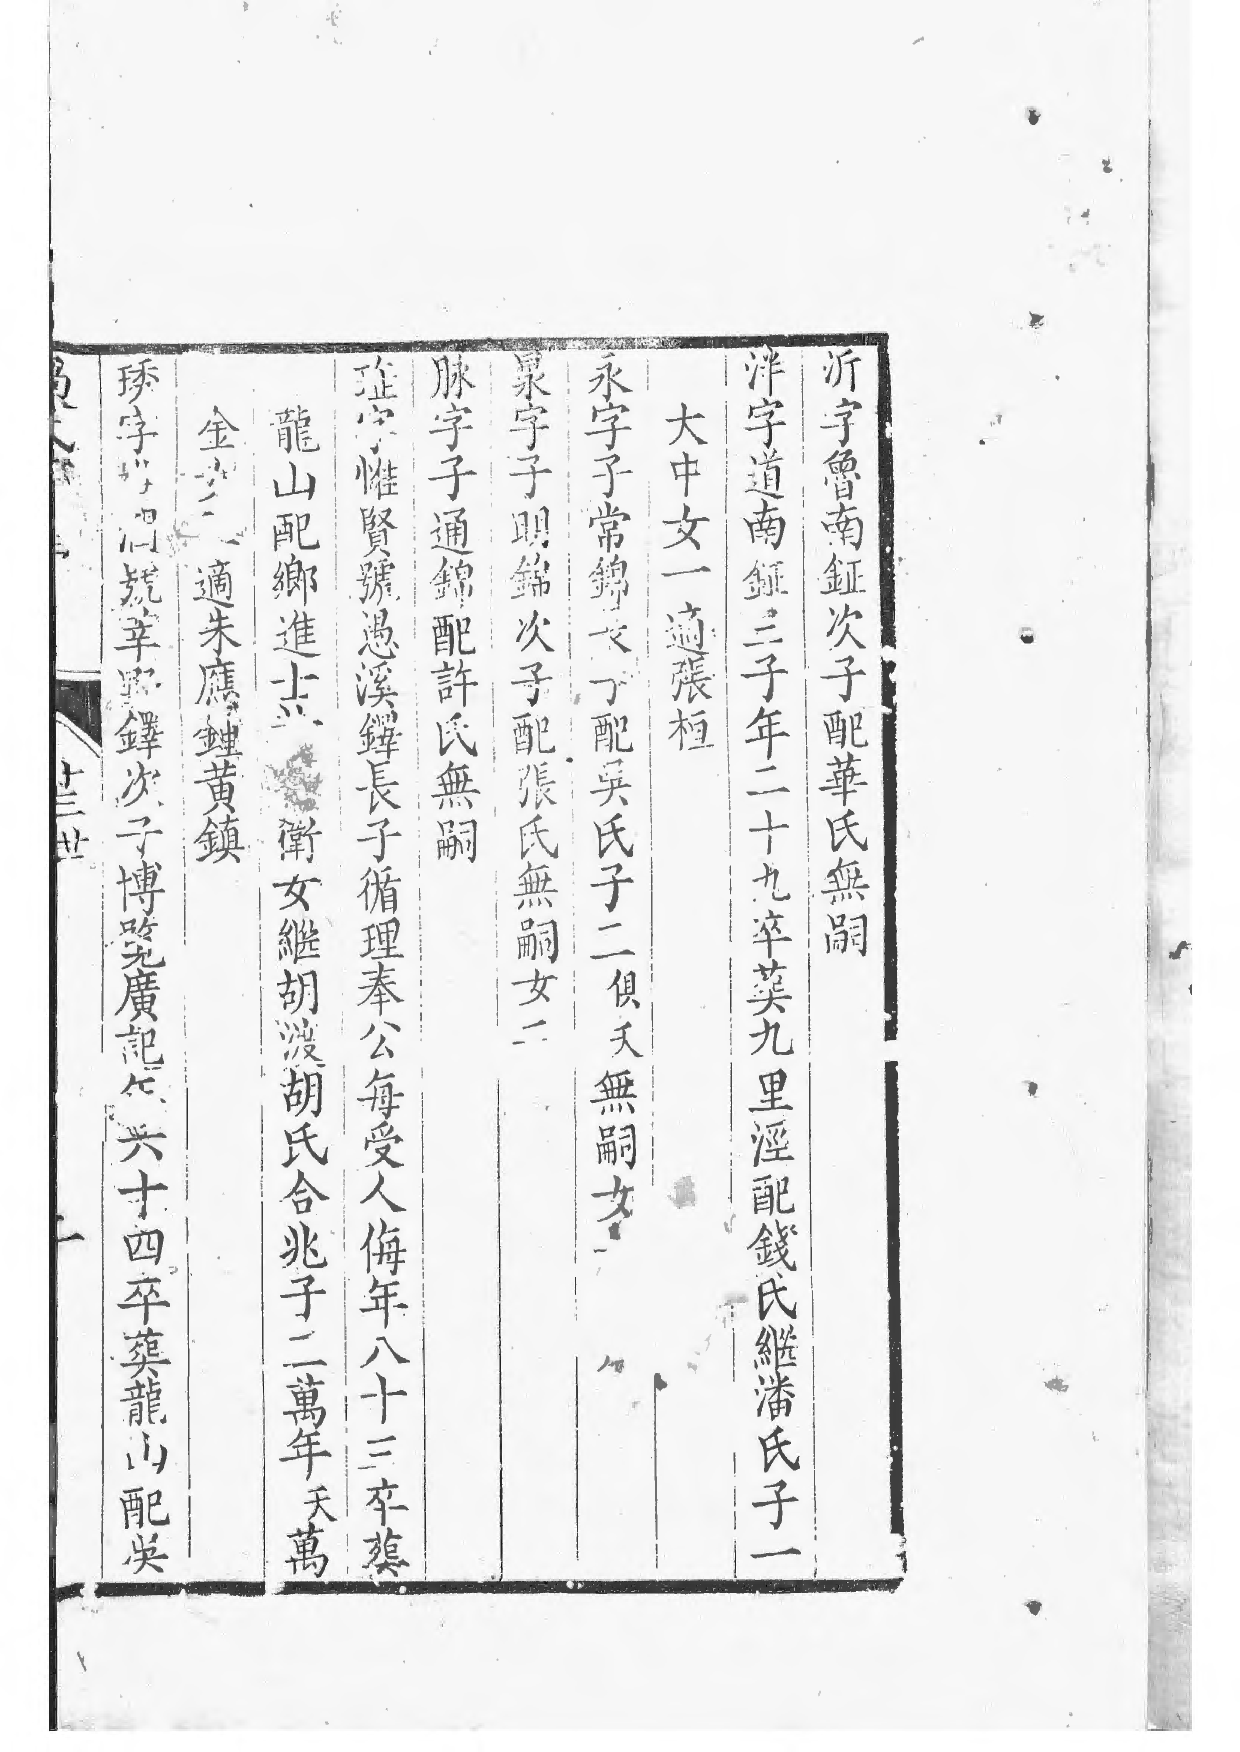 沂字魯南鉦次子配華氏無嗣
泮字道南鉦三子年二十九卒葬九里涇配錢氏繼潘氏子一
大中女一適張桓
永字子常錦長子配吳氏子二俱夭無嗣女
泉字子明錦次子配張氏無嗣女二
脉字子通錦配許氏無嗣
琟字惟賢號愚溪鐸長子循理奉公每受人侮年八十三卒葬
龍山配鄉進士 衛女繼胡 胡氏合兆子二萬年夭萬
金 適朱應鍾黄鎮
琇字 潤號 鐸次子博覽廣記年六十四卒葬龍山配吳
十三世